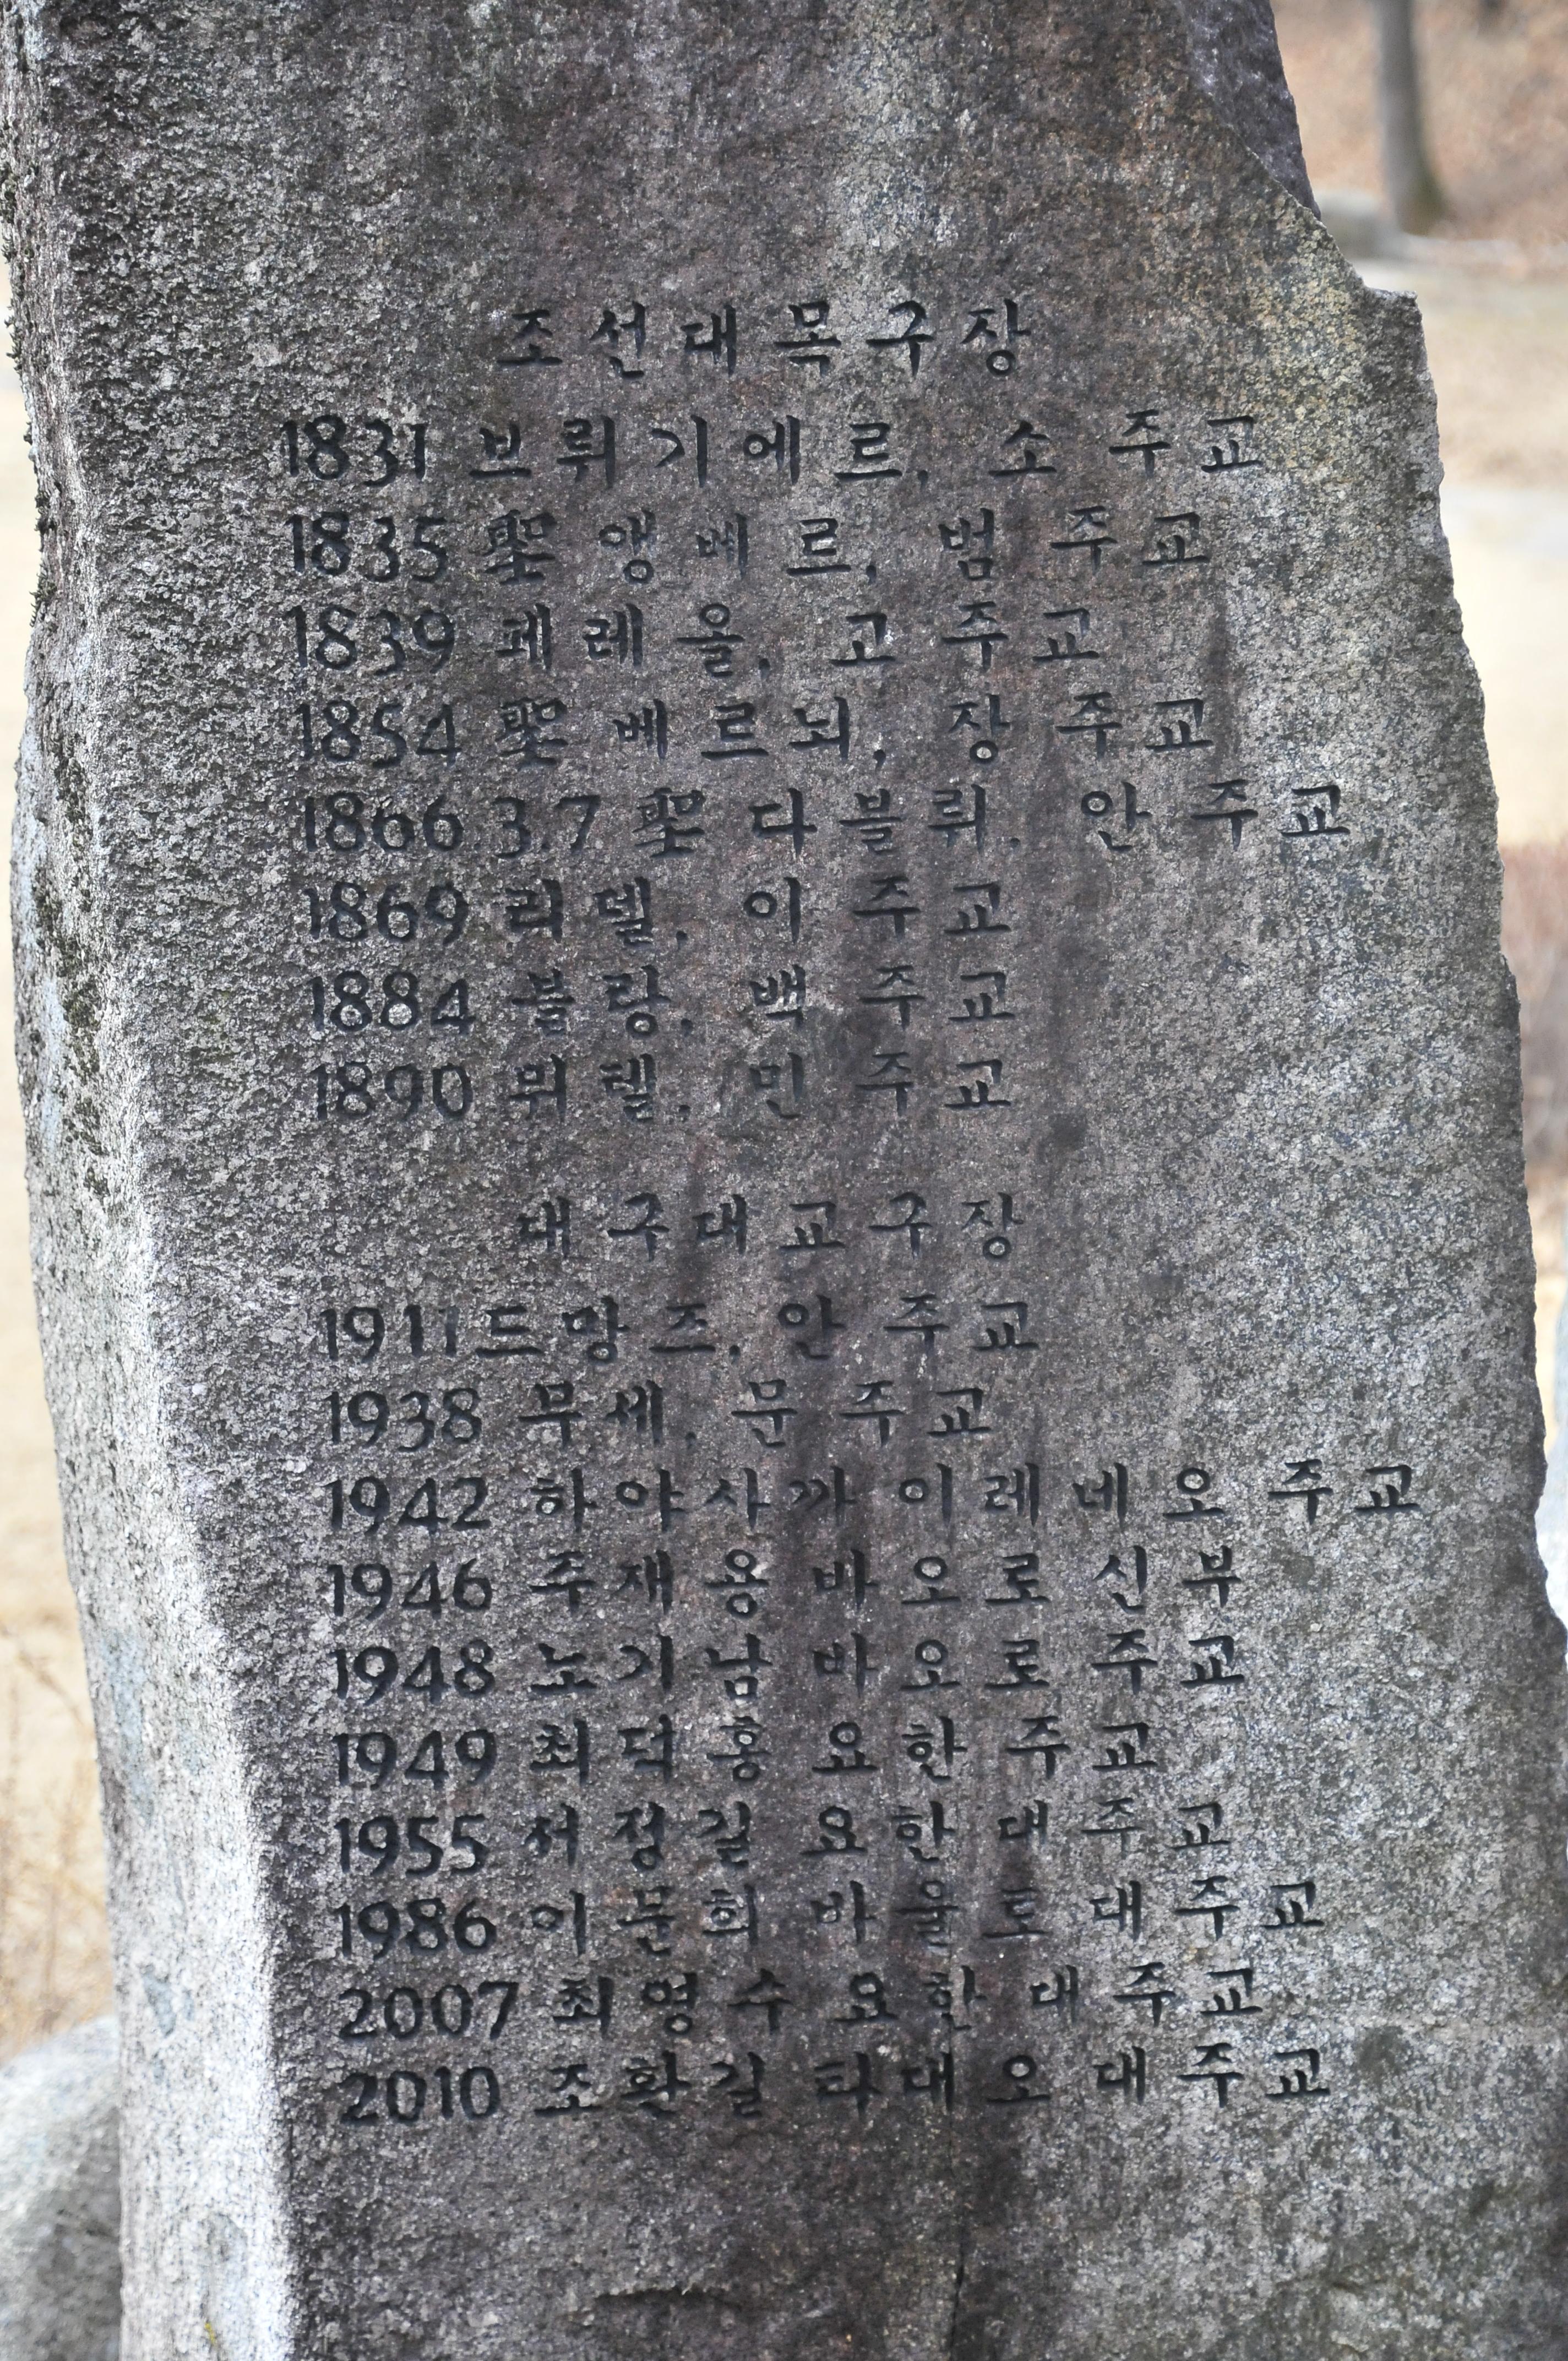 조선대목구장
1831 브뤼기에르, 소 주교
1835 聖 앵베르, 범 주교
1839 페레올, 고 주교
1854 聖 베르뇌, 장 주교
1866 3.7 聖 다블뤼, 안 주교
1869 리델, 이 주교
1884 블랑, 백 주교
1890 뮈텔, 민 주교
대구대교구장
1911 드망즈, 안 주교
1938 무세, 문 주교
1942 하야사까 이레네오 주교
1946 주재용 바오로 신부
1948 노기남 바오로 주교
1949 최덕홍 요한 주교
1955 서정길 요한 대주교
1986 이문희 바울로 대주교
2007 최영수 요한 대주교
2010 조환길 타대오 대주교